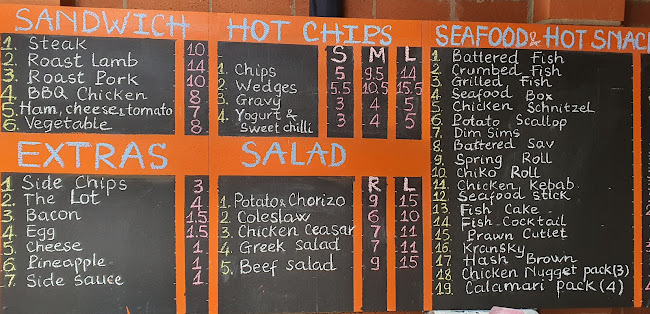 SANDWICH
1. Steak 10
2. Roast Lamb 14
3. Roast Pork 10
4. BBQ Chicken 8
5. Ham, cheese & tomato 7
6. Vegetable 8
HOT CHIPS
S M L
1. Chips 5 9.5 14
2. Wedges 5.5 10.5 15.5
3. Gravy 3 4 5
4. Yogurt &
sweet chilli 3 4 5
EXTRAS
1 Side Chips 3
2. The Lot 4
3. Bacon 1.5
4. Egg 1.5
5. Cheese 1
6. Pineapple 1
7. Side sauce 1
SALAD
R L
1. Potato & Chorizo 9 15
2. Coleslaw 6 10
3. Chicken Ceasar 7 11
4. Greek salad 7 11
5. Beef salad 9 15
SEAFOOD & HOT SNAC
1. Battered Fish
2. Crumbed Fish
3. Grilled Fish
4. Seafood Box
5. Chicken Schnitzel
6. Potato Scallop
7. Dim Sims
8. Battered Sav
9. Spring Roll
10. Chiko Roll
11. Chicken Kebab
12. Seafood stick
13. Fish Cake
14. Fish Cocktail
15. Prawn Cutlet
16. Kransky
17. Hash Brown
18 Chicken Nugget pack (3)
19. Calamari pack (4)